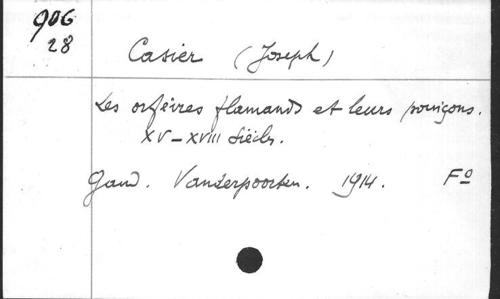 906
28
Casier (Joseph)
Les orfèvres flamands et leurs poinçons.
XV-XVIII siècles.
Gand. Vanderpoorten. 1914. Fº